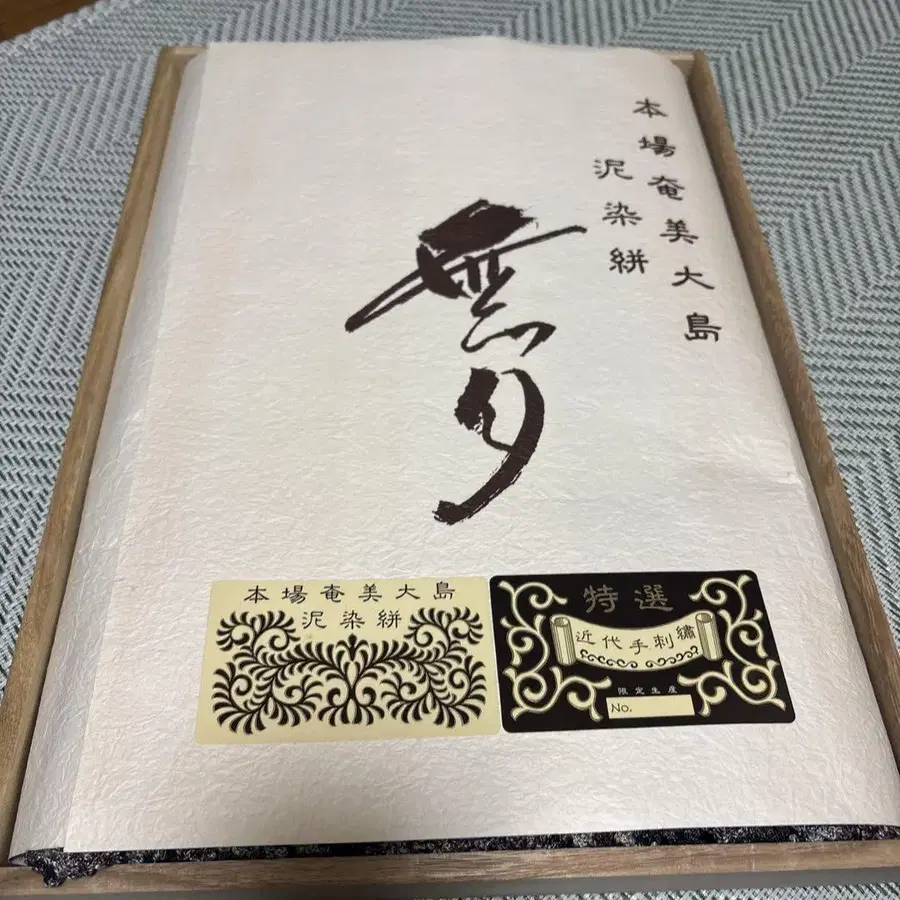 本場奄美大島
泥染絣
本場奄美大島
泥染絣
特選
近代手刺繍
限定生産
No.